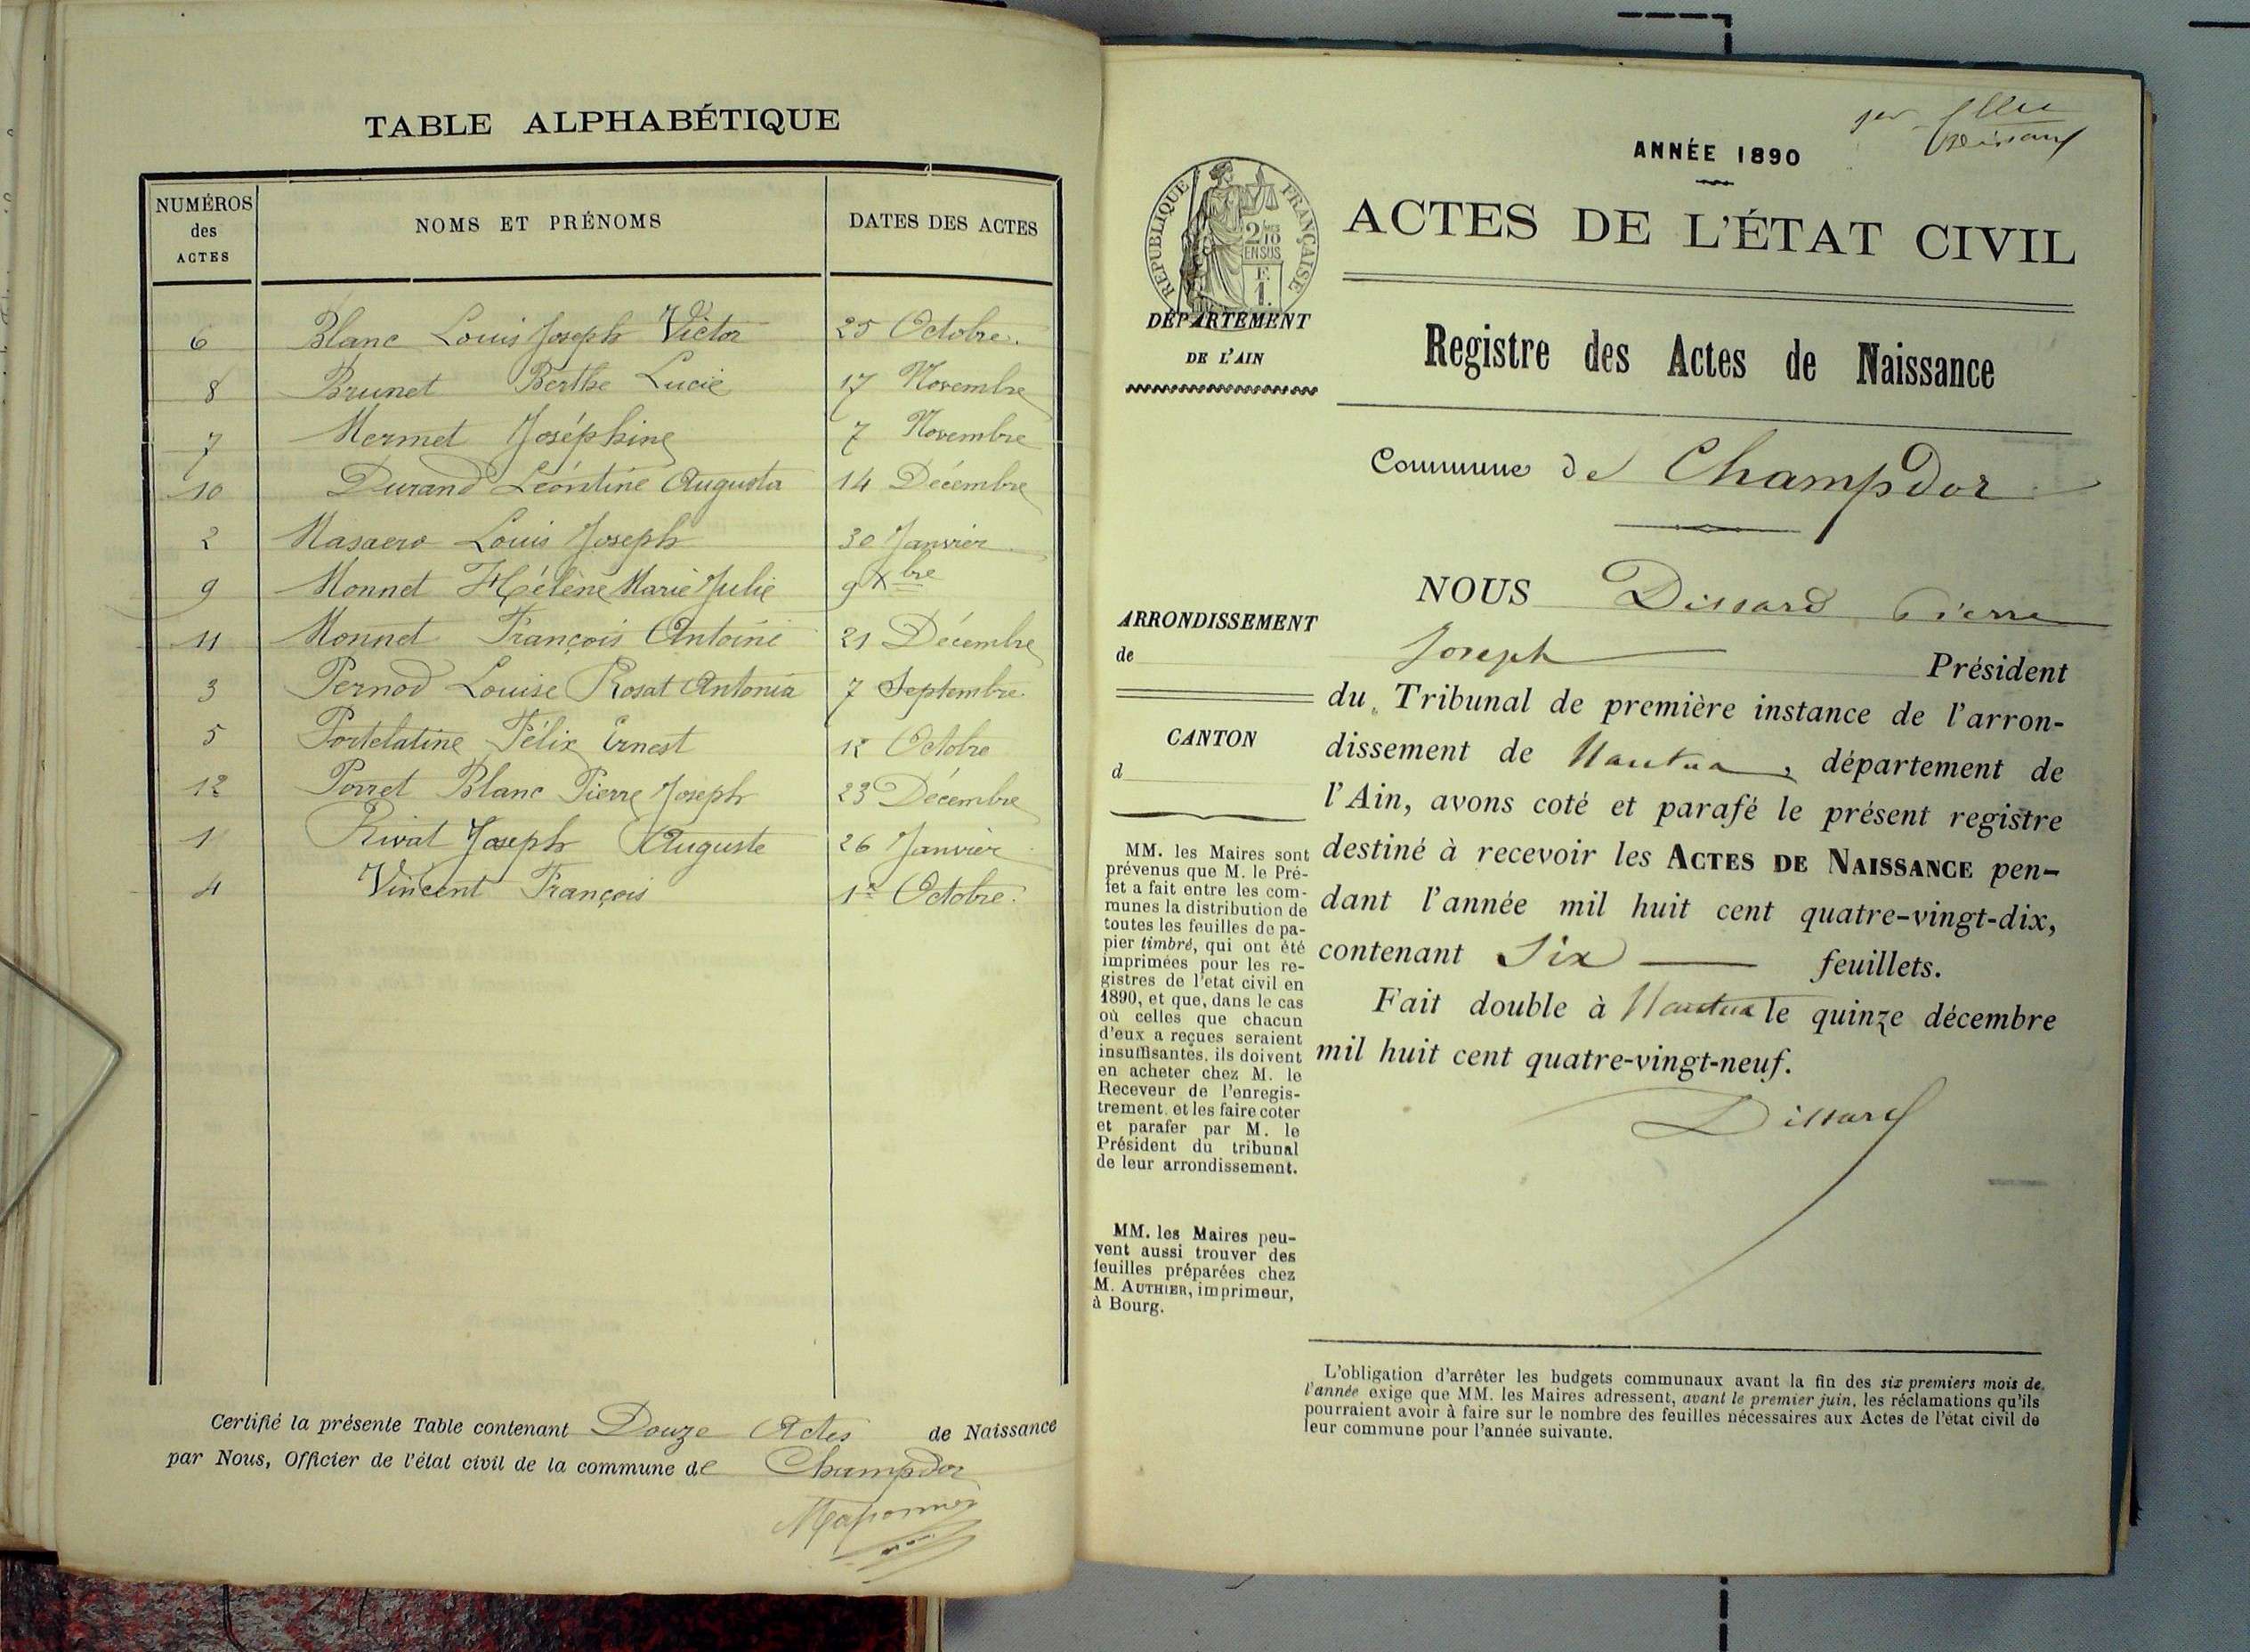 TABLE ALPHABÉTIQUE
NUMÉROS des ACTES NOMS ET PRÉNOMS DATES DES ACTES
6 Blanc Louis Joseph Victor 25 Octobre.
8 Brunet Berthe Lucie 17 Novembre
7 Mermet Joséphine 7 Novembre
10 Durand Léontine Augusta 14 Décembre
2 Masaero Louis Joseph 30 Janvier
9 Monnet Hélène Marie Julie 9 Xbre
11 Monnet François Antoine 21 Décembre
3 Pernod Louise Rosat Antonia 7 Septembre
5 Portelatine Félix Ernest 12 Octobre
12 Porret Blanc Pierre Joseph 23 Décembre
1 Rivat Joseph Auguste 26 Janvier
4 Vincent François 1er Octobre.
Certifié la présente Table contenant Douze Actes de Naissance
par Nous, Officier de l'état civil de la commune de Champdor
ANNÉE 1890
RÉPUBLIQUE FRANÇAISE
2/10
EN SUS
F.
1.
ACTES DE L'ÉTAT CIVIL
DÉPARTEMENT
DE L'AIN
Registre des Actes de Naissance
Commune de Champdor
ARRONDISSEMENT
de
CANTON
d
NOUS Dissard Pierre
Joseph Président
du Tribunal de première instance de l'arron-
dissement de Nantua, département de
l'Ain, avons coté et parafé le présent registre
destiné à recevoir les ACTES DE NAISSANCE pen-
dant l'année mil huit cent quatre-vingt-dix,
contenant Six feuillets.
Fait double à Nantua le quinze décembre
mil huit cent quatre-vingt-neuf.
Dissard
MM. les Maires sont
prévenus que M. le Pré-
fet a fait entre les com-
munes la distribution de
toutes les feuilles de pa-
pier timbré, qui ont été
imprimées pour les re-
gistres de l'etat civil en
1890, et que, dans le cas
où celles que chacun
d'eux a reçues seraient
insuffisantes, ils doivent
en acheter chez M. le
Receveur de l'enregis-
trement et les faire coter
et parafer par M. le
Président du tribunal
de leur arrondissement.
MM. les Maires peu-
vent aussi trouver des
feuilles préparées chez
M. AUTHIER, imprimeur,
à Bourg.
L'obligation d'arrêter les budgets communaux avant la fin des six premiers mois de
l'année exige que MM. les Maires adressent, avant le premier juin, les réclamations qu'ils
pourraient avoir à faire sur le nombre des feuilles nécessaires aux Actes de l'état civil de
leur commune pour l'année suivante.